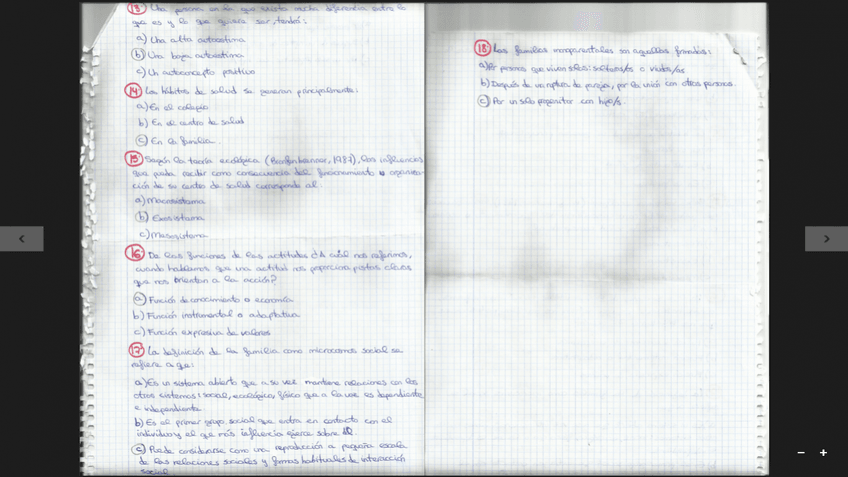 13 Una persona en la que exista mucha diferencia entre lo
que es y lo que quiere ser, tendrá:
a) Una alta autoestima
b) Una baja autoestima
c) Un autoconcepto positivo
14 Los hábitos de salud se generan principalmente:
a) En el colegio
b) En el centro de salud
c) En la familia.
15 Según la teoría ecológica (Bronfenbrenner, 1987), las influencias
que pueda recibir como consecuencia del funcionamiento u organiza-
ción de su centro de salud corresponde al:
a) Macrosistema
b) Exosistema
c) Mesosistema
16 De las funciones de las actitudes ¿A cuál nos referimos,
cuando hablamos que una actitud nos proporciona pautas claras
que nos orientan a la acción?
a) Función de conocimiento o economía
b) Función instrumental o adaptativa
c) Función expresiva de valores
17 La definición de la familia como microcosmos social se
refiere a que:
a) Es un sistema abierto que a su vez mantiene relaciones con los
otros sistemas: social, ecológico, físico que a la vez es dependiente
e independiente
b) Es el primer grupo social que entra en contacto con el
individuo y el que más influencia ejerce sobre él.
c) Puede considerarse como una reproducción a pequeña escala
de las relaciones sociales y formas habituales de interacción
social
18 Las familias monoparentales son aquellas formadas:
a) Por personas que viven solas: solteros/as o viudos/as
b) Después de una ruptura de parejas, por la unión con otras personas.
c) Por un solo progenitor con hijo/s.